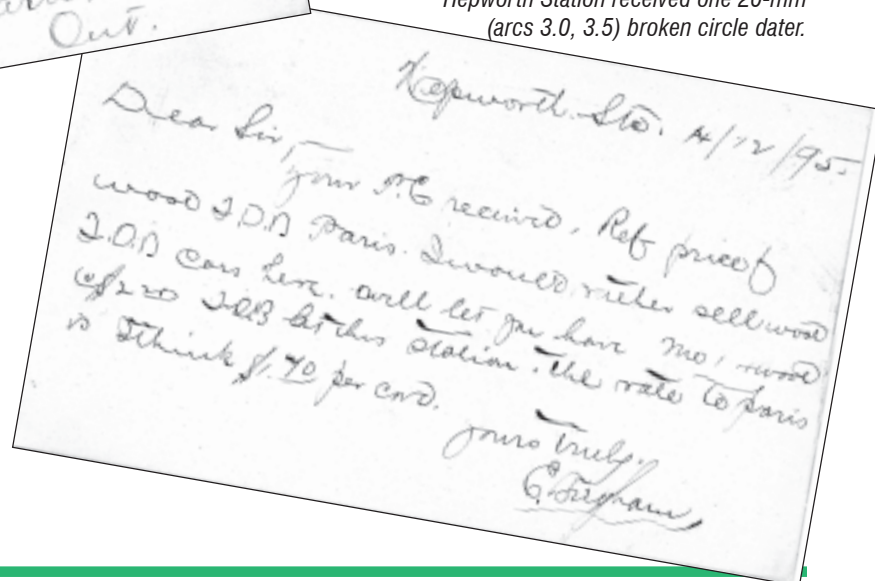 Out.
Hepworth Station received one 20-mm
(arcs 3.0, 3.5) broken circle dater.
Hepworth Sta. 4/12/95
Dear Sir,
your P.C received. Ref price of
wood F.O.B Paris. I would rather sell wood
F.O.B cars here. will let you have No 1 wood
@ $2.20 F.O.B at this station. the rate to Paris
is I think $1.70 per cord.
yours truly.